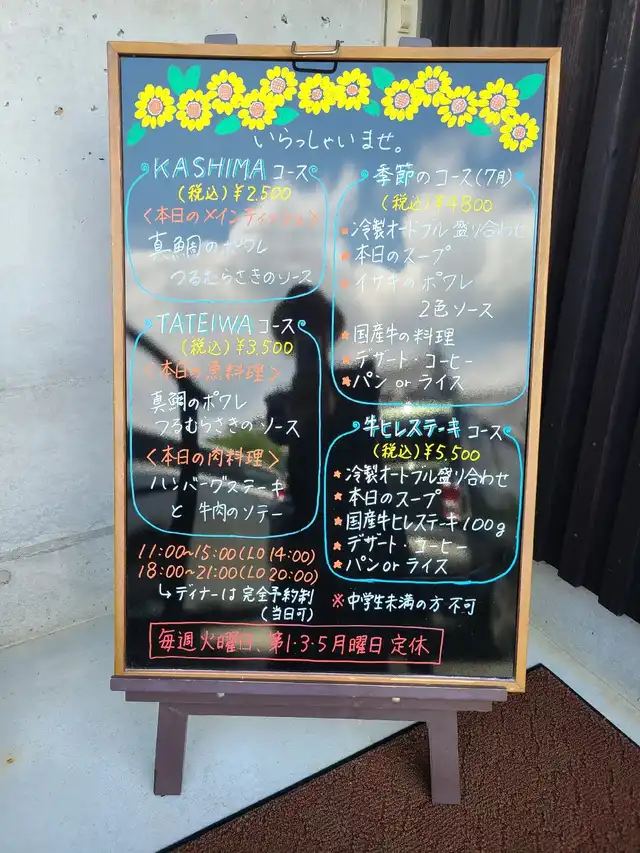 いらっしゃいませ。
KASHIMA コース
(税込)¥2,500
<本日のメインディッシュ>
真鯛のポワレ
つるむらさきのソース
TATEIWA コース
(税込)¥3,500
<本日の魚料理>
真鯛のポワレ
つるむらさきのソース
<本日の肉料理>
ハンバーグステーキ
と 牛肉のソテー
季節のコース(7月)
(税込)¥4800
冷製オードブル盛り合わせ
本日のスープ
イサキのポワレ
2色ソース
国産牛の料理
デザート・コーヒー
パン or ライス
牛ヒレステーキ コース
(税込)¥5,500
冷製オードブル盛り合わせ
本日のスープ
国産牛ヒレステーキ100g
デザート・コーヒー
パン or ライス
11:00~15:00(LO 14:00)
18:00~21:00(LO 20:00)
↳ディナーは 完全予約制
(当日可)
※中学生未満の方 不可
毎週火曜日、第1・3・5月曜日 定休